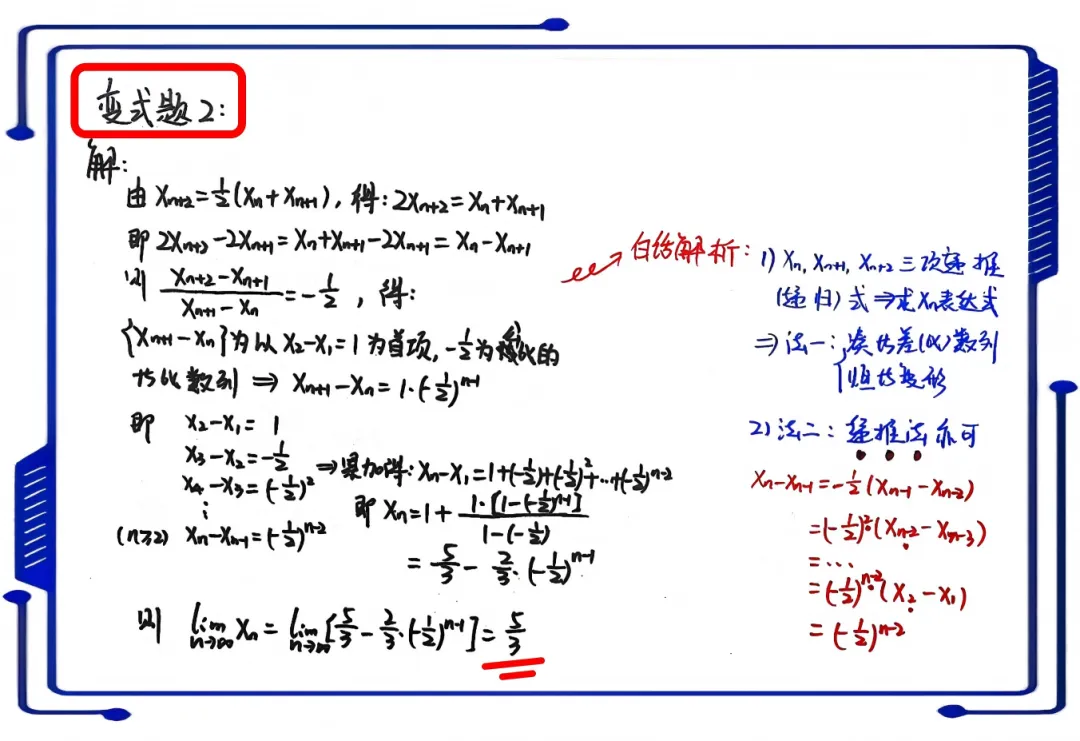 变式题2:
解:
由 Xn+2=½(Xn+Xn+1), 得: 2Xn+2=Xn+Xn+1
即 2Xn+2-2Xn+1=Xn+Xn+1-2Xn+1=Xn-Xn+1
则 (Xn+2-Xn+1)/(Xn+1-Xn)=-1/2, 得:
{Xn+1-Xn}为以X2-X1=1为首项,-1/2为公比的
等比数列 ⇒ Xn+1-Xn=1·(-1/2)ⁿ⁻¹
即 X2-X1=1
X3-X2=-1/2
X4-X3=(-1/2)²
⋮
(n≥2) Xn-Xn-1=(-1/2)ⁿ⁻²
⇒累加得: Xn-X1=1+(-1/2)+(-1/2)²+…+(-1/2)ⁿ⁻²
即 Xn=1+ 1·[1-(-1/2)ⁿ⁻¹]/(1-(-1/2))
=5/3-2/3·(-1/2)ⁿ⁻¹
则 lim n→∞ Xn=lim n→∞ [5/3-2/3·(-1/2)ⁿ⁻¹]=5/3
白话解析:
1) Xn, Xn+1, Xn+2 三项递推
(递归)式⇒求Xn表达式
⇒法一:凑等差(比)数列
恒等变形
2) 法二:递推法亦可
Xn-Xn-1=-1/2(Xn-1-Xn-2)
=(-1/2)²(Xn-2-Xn-3)
=…
=(-1/2)ⁿ⁻²(X2-X1)
=(-1/2)ⁿ⁻²